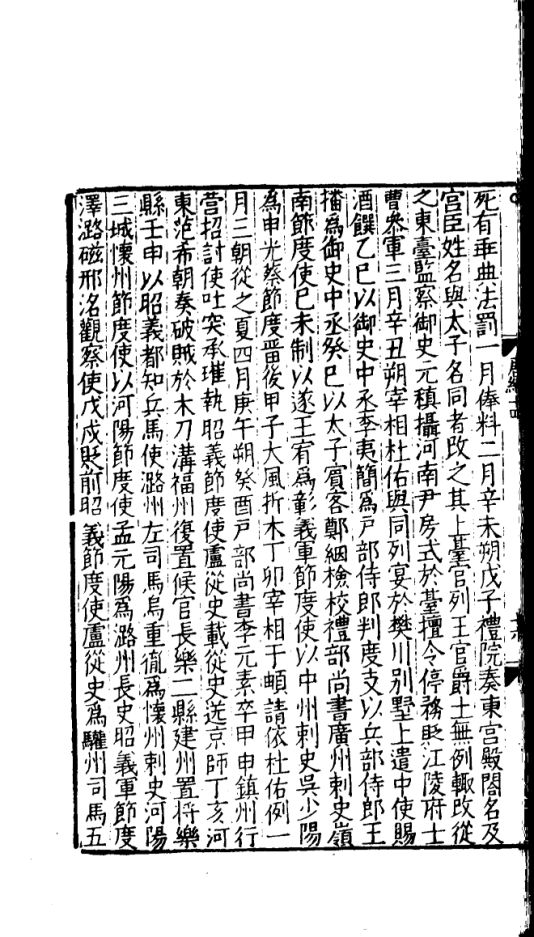 死有垂典法罰一月俸料二月辛未朔戊子禮院奏東宮殿閤名及
宮臣姓名與太子名同者改之其上臺官列王官爵土無例輙改從
之東臺監察御史元稹攝河南尹房式於臺擅令停務貶江陵府士
曹叅軍三月辛丑朔宰相杜佑與同列宴於樊川別墅上遣中使賜
酒饌乙巳以御史中丞李夷簡爲戶部侍郎判度支以兵部侍郎王
播爲御史中丞癸巳以太子賓客鄭絪檢校禮部尚書廣州刺史嶺
南節度使巳未制以遂王宥爲彰義軍節度使以申州刺史吳少陽
爲申光蔡節度畱後甲子大風折木丁卯宰相于頔請依杜佑例一
月三朝從之夏四月庚午朔癸酉戶部尚書李元素卒甲申鎮州行
營招討使吐突承璀執昭義節度使盧從史載從史送京師丁亥河
東范希朝奏破賊於木刀溝福州復置候官長樂二縣建州置將樂
縣壬申以昭義都知兵馬使潞州左司馬烏重𦙍爲懷州刺史河陽
三城懷州節度使以河陽節度使孟元陽爲潞州長史昭義軍節度
澤潞磁邢洺觀察使戊戌貶前昭義節度使盧從史爲驩州司馬五